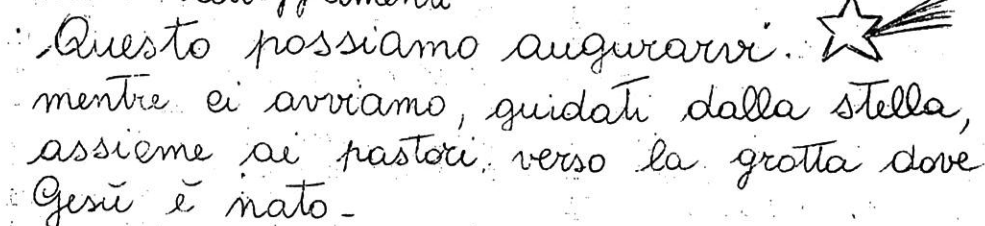 Questo possiamo augurarvi.
mentre ci avviamo, guidati dalla stella,
assieme ai pastori. verso la grotta dove
Gesù è nato-